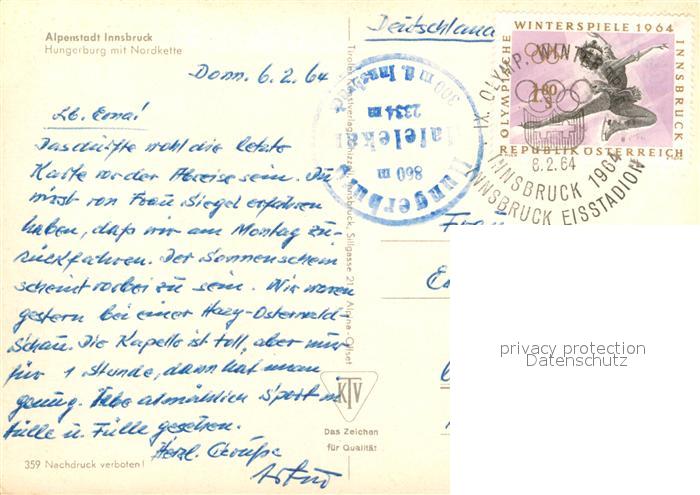 Alpenstadt Innsbruck
Hungerburg mit Nordkette
Deutschland
Donn. 6.2.64
Lb. Erna!
Das dürfte wohl die letzte
Karte vor der Abreise sein. Du
wirst von Frau Siegel erfahren
haben, daß wir am Montag zu-
rückfahren. Der Sonnenschein
scheint vorbei zu sein. Wir waren
gestern bei einer Hazy-Osterwald-
Schau. Die Kapelle ist toll, aber nur
für 1 Stunde, dann hat man
genug. Habe allmählich Sport in
Hülle u. Fülle gesehen.
Herzl. Grüße
359 Nachdruck verboten!
Tiroler Kunstverlag Innsbruck, Sillgasse 21 Alpina-Offset
KTV
Das Zeichen
für Qualität
300 m ü. Innsbruck
Hafelekar
2334 m
860 m
Hungerburg
OLYMPISCHE WINTERSPIELE 1964 INNSBRUCK
1.80
S
REPUBLIK ÖSTERREICH
IX. OLYMP. WINTER
8.2.64
INNSBRUCK 1964
INNSBRUCK EISSTADION
Frau
privacy protection
Datenschutz